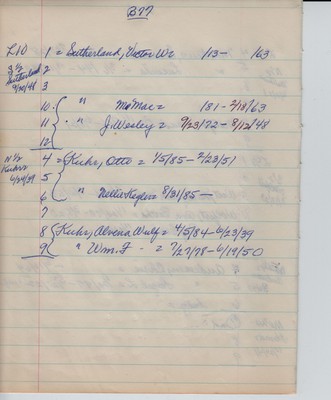 B77
L10 1 = Sutherland, Victor W= /13- /63
S 1/2 Sutherland 2
9/20/48 3
10 = " Mo Mac = /81 - 2/18/63
11 = " J. Wesley = 9/23/72 - 8/12/48
12
N 1/2 4 = Kuhr, Otto = 1/5/85 - 2/23/51
Kuhrs 5
6/24/39
6 " Nellie Kegler = 8/31/85 -
7
8 Kuhr, Alvena Wulf = 4/5/84 - 6/23/39
9 = " Wm. F. = 7/27/78 - 6/19/50